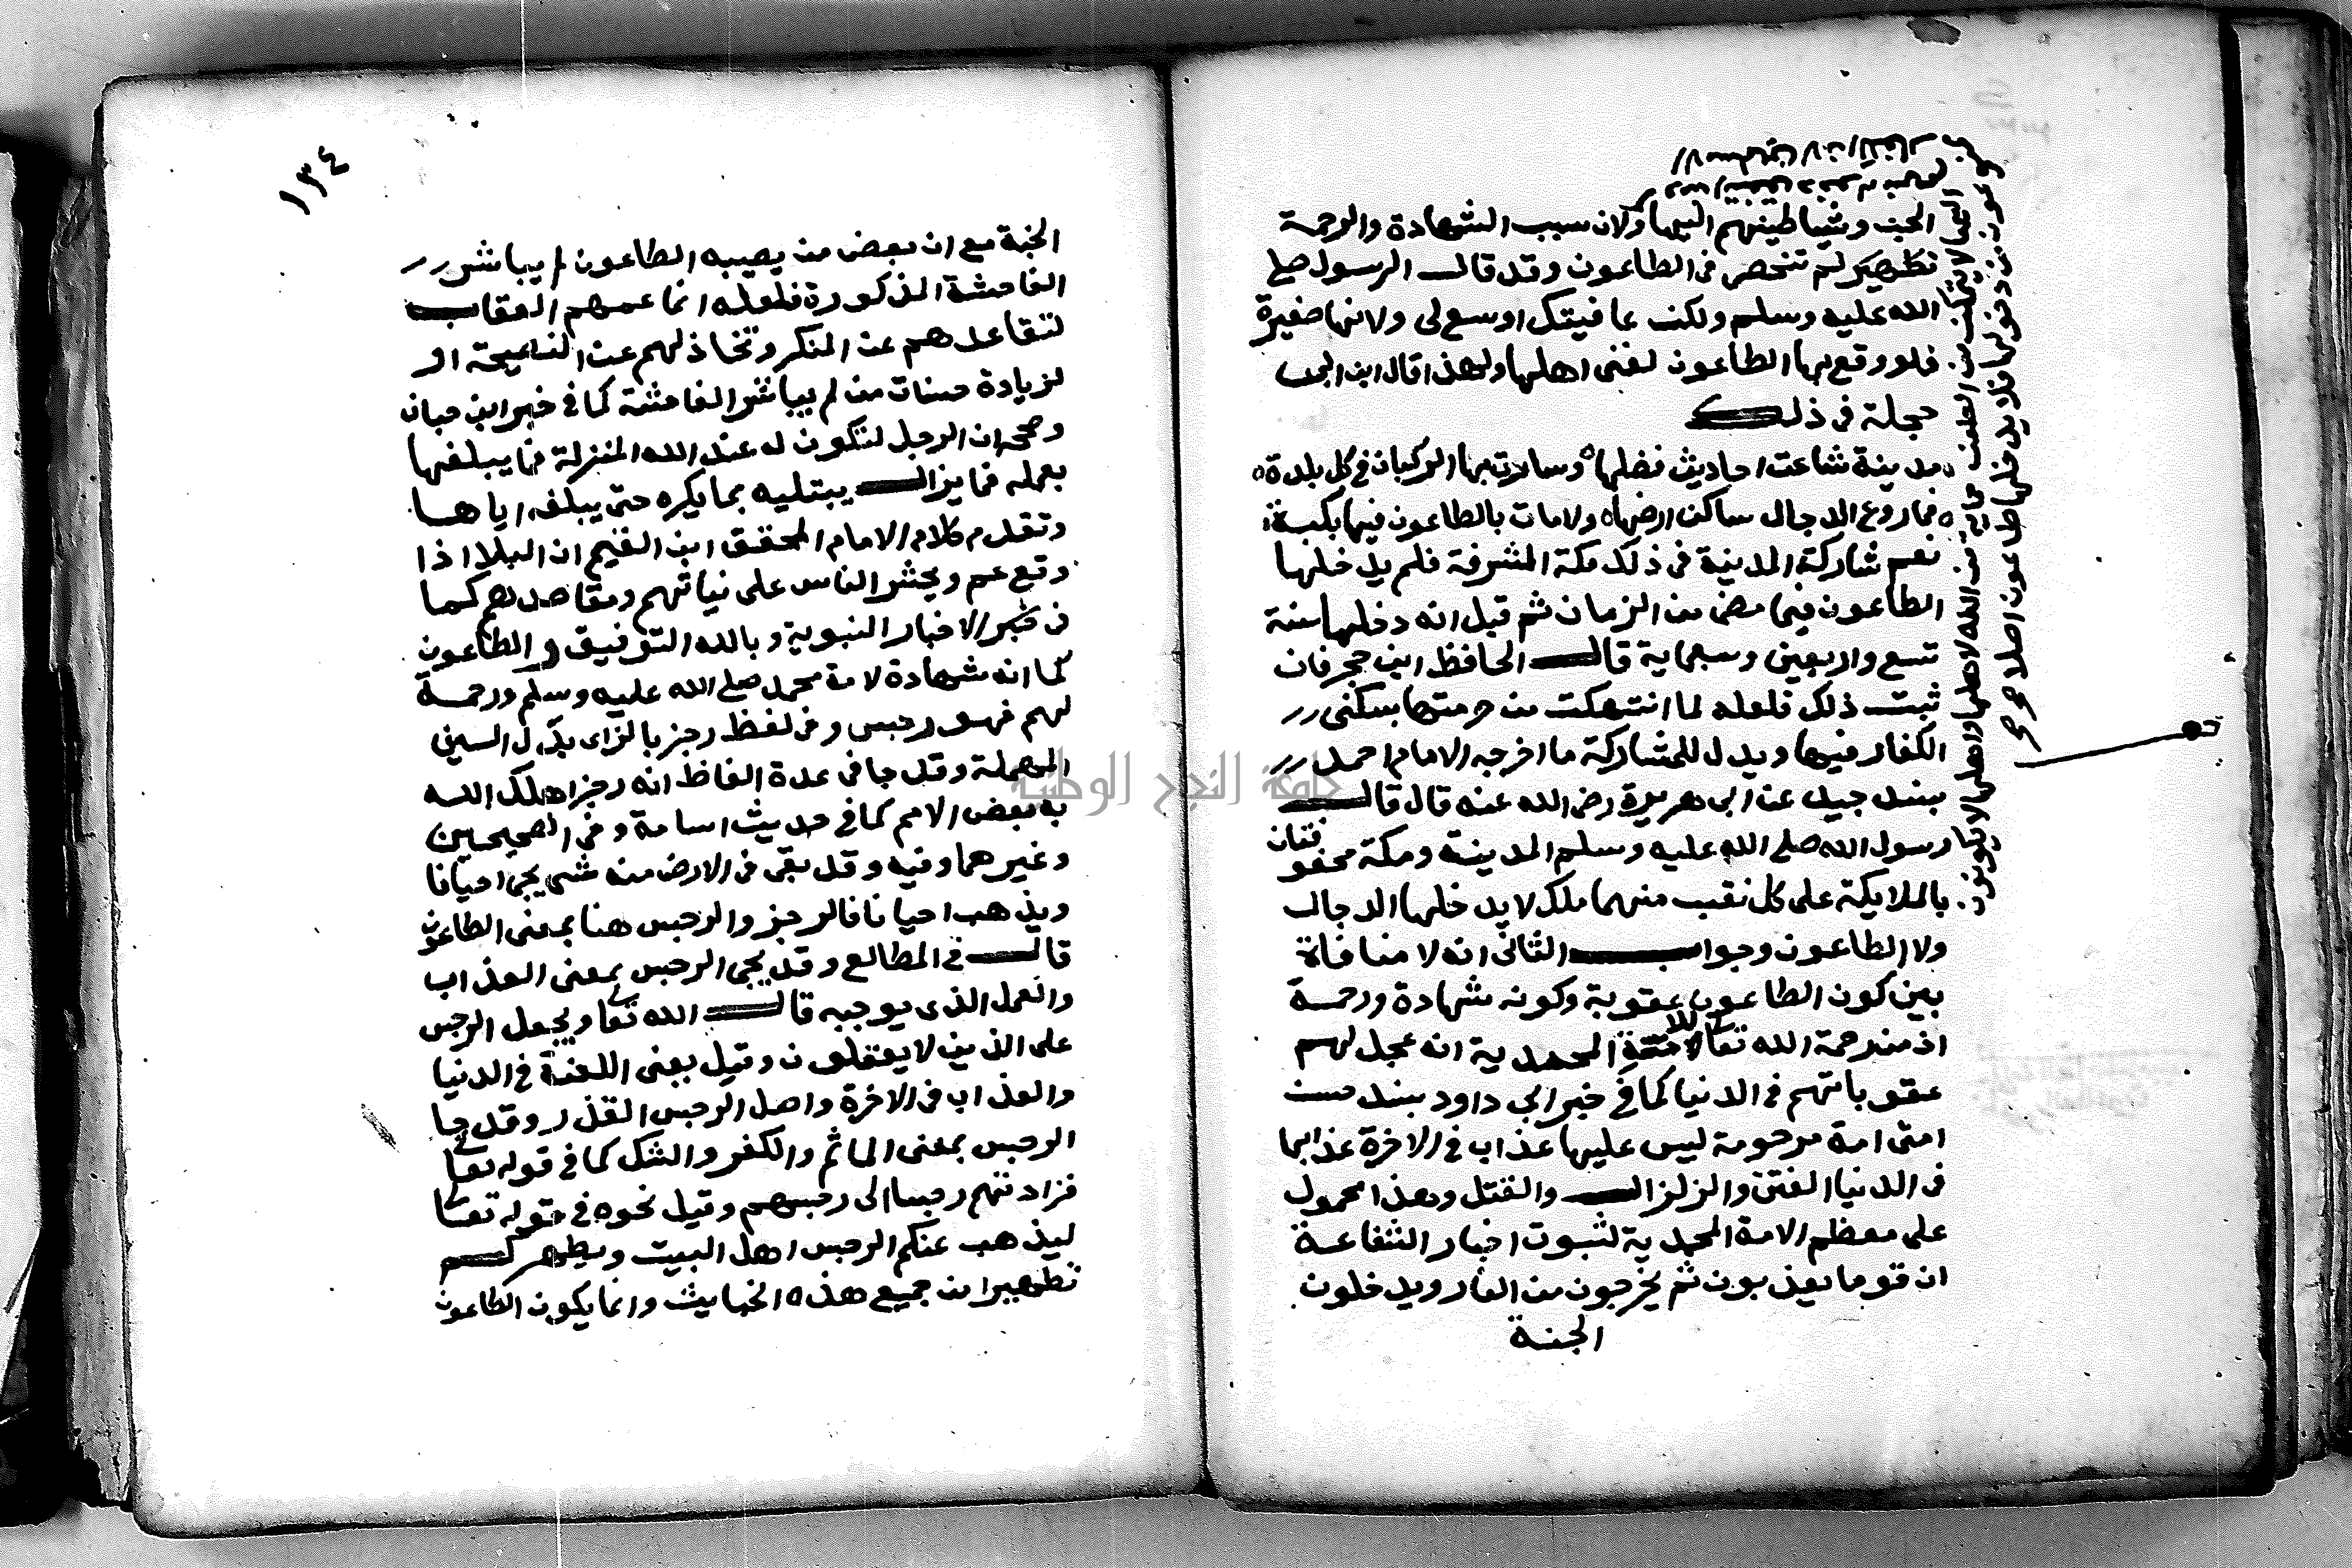 الجن وشياطينهم اليها ولان سبب الشهادة والرحمة
تطهير لم تنحصر في الطاعون وقد قال الرسول صلى
الله عليه وسلم ولكن عافيتك اوسع لي ولانها صغيرة
فلو وقع بها الطاعون لفنى اهلها ولهذا قال ابن ابي
حجلة في ذلك
مدينة شاعت احاديث فضلها وسارت بها الركبان في كل بلدة
فما روع الدجال ساكن ارضها ولا مات بالطاعون فيها بكبة
نعم شاركة المدينة في ذلك مكة المشرفة فلم يدخلها
الطاعون فيما مضى من الزمان ثم قيل انه دخلها سنة
تسع واربعين وسبعماية قال الحافظ ابن حجر فان
ثبت ذلك فلعله لما انتهكت من حرمتها بسكنى
الكفار فيها ويدل للمشاركة ما اخرجه الامام احمد
بسند جيد عن ابي هريرة رضي الله عنه قال قال
رسول الله صلى الله عليه وسلم المدينة ومكة محفوفتان
بالملايكة على كل نقب منهما ملك لا يدخلها الدجال
ولا الطاعون وجواب الثاني انه لا منافاة
بين كون الطاعون عقوبة وكونه شهادة ورحمة
اذ من رحمة الله تعالى للامة المحمدية انه عجل لهم
عقوباتهم في الدنيا كما في خبر ابي داود بسند حسن
امتى امة مرحومة ليس عليها عذاب في الاخرة عذابها
في الدنيا الفتن والزلازل والقتل وهذا محمول
على معظم الامة المحمدية لثبوت اخبار الشفاعة
ان قوما يعذبون ثم يخرجون من النار ويدخلون
الجنة
لا يدخلها طاعون اصلا
١٣٤
الجنة مع ان بعض من يصيبه الطاعون لم يباشر
الفاحشة المذكورة فلعله انما عمهم العقاب
لتقاعدهم عن المنكر وتخاذلهم عن النصيحة او
لزيادة حسنات من لم يباشر الفاحشة كما في خبر ابن حبان
وصححه ان الرجل لتكون له عند الله المنزلة فما يبلغها
بعمله فما يزال يبتليه بما يكره حتى يبلغه اياها
وتقدم كلام الامام المحقق ابن القيم ان البلا اذا
وقع عم ويحشر الناس على نياتهم ومقاصدهم كما
في خبر الاخبار النبوية وبالله التوفيق والطاعون
كما انه شهادة لامة محمد صلى الله عليه وسلم ورحمة
لهم فهو رجس وفي لفظ رجز بالزاى بدل السين
المهملة وقد جا في عدة الفاظ انه رجز اهلك الله
به بعض الامم كما في حديث اسامة وفي الصحيحين
وغيرهما وفيه وقد بقى في الارض منه شى يجى احيانا
ويذهب احيانا فالرجز والرجس هنا بمعنى الطاعون
قال في المطالع وقد يجى الرجس بمعنى العذاب
والعمل الذى يوجبه قال الله تعالى ويجعل الرجس
على الذين لا يعقلون وقيل يعنى اللعنة في الدنيا
والعذاب في الاخرة واصل الرجس القذر وقد جا
الرجس بمعنى الماثم والكفر والشك كما في قوله تعالى
فزادتهم رجسا الى رجسهم وقيل نحوه في قوله تعالى
ليذهب عنكم الرجس اهل البيت ويطهركم
تطهيرا من جميع هذه الخبايث وانما يكون الطاعون
جامعة النجاح الوطنية